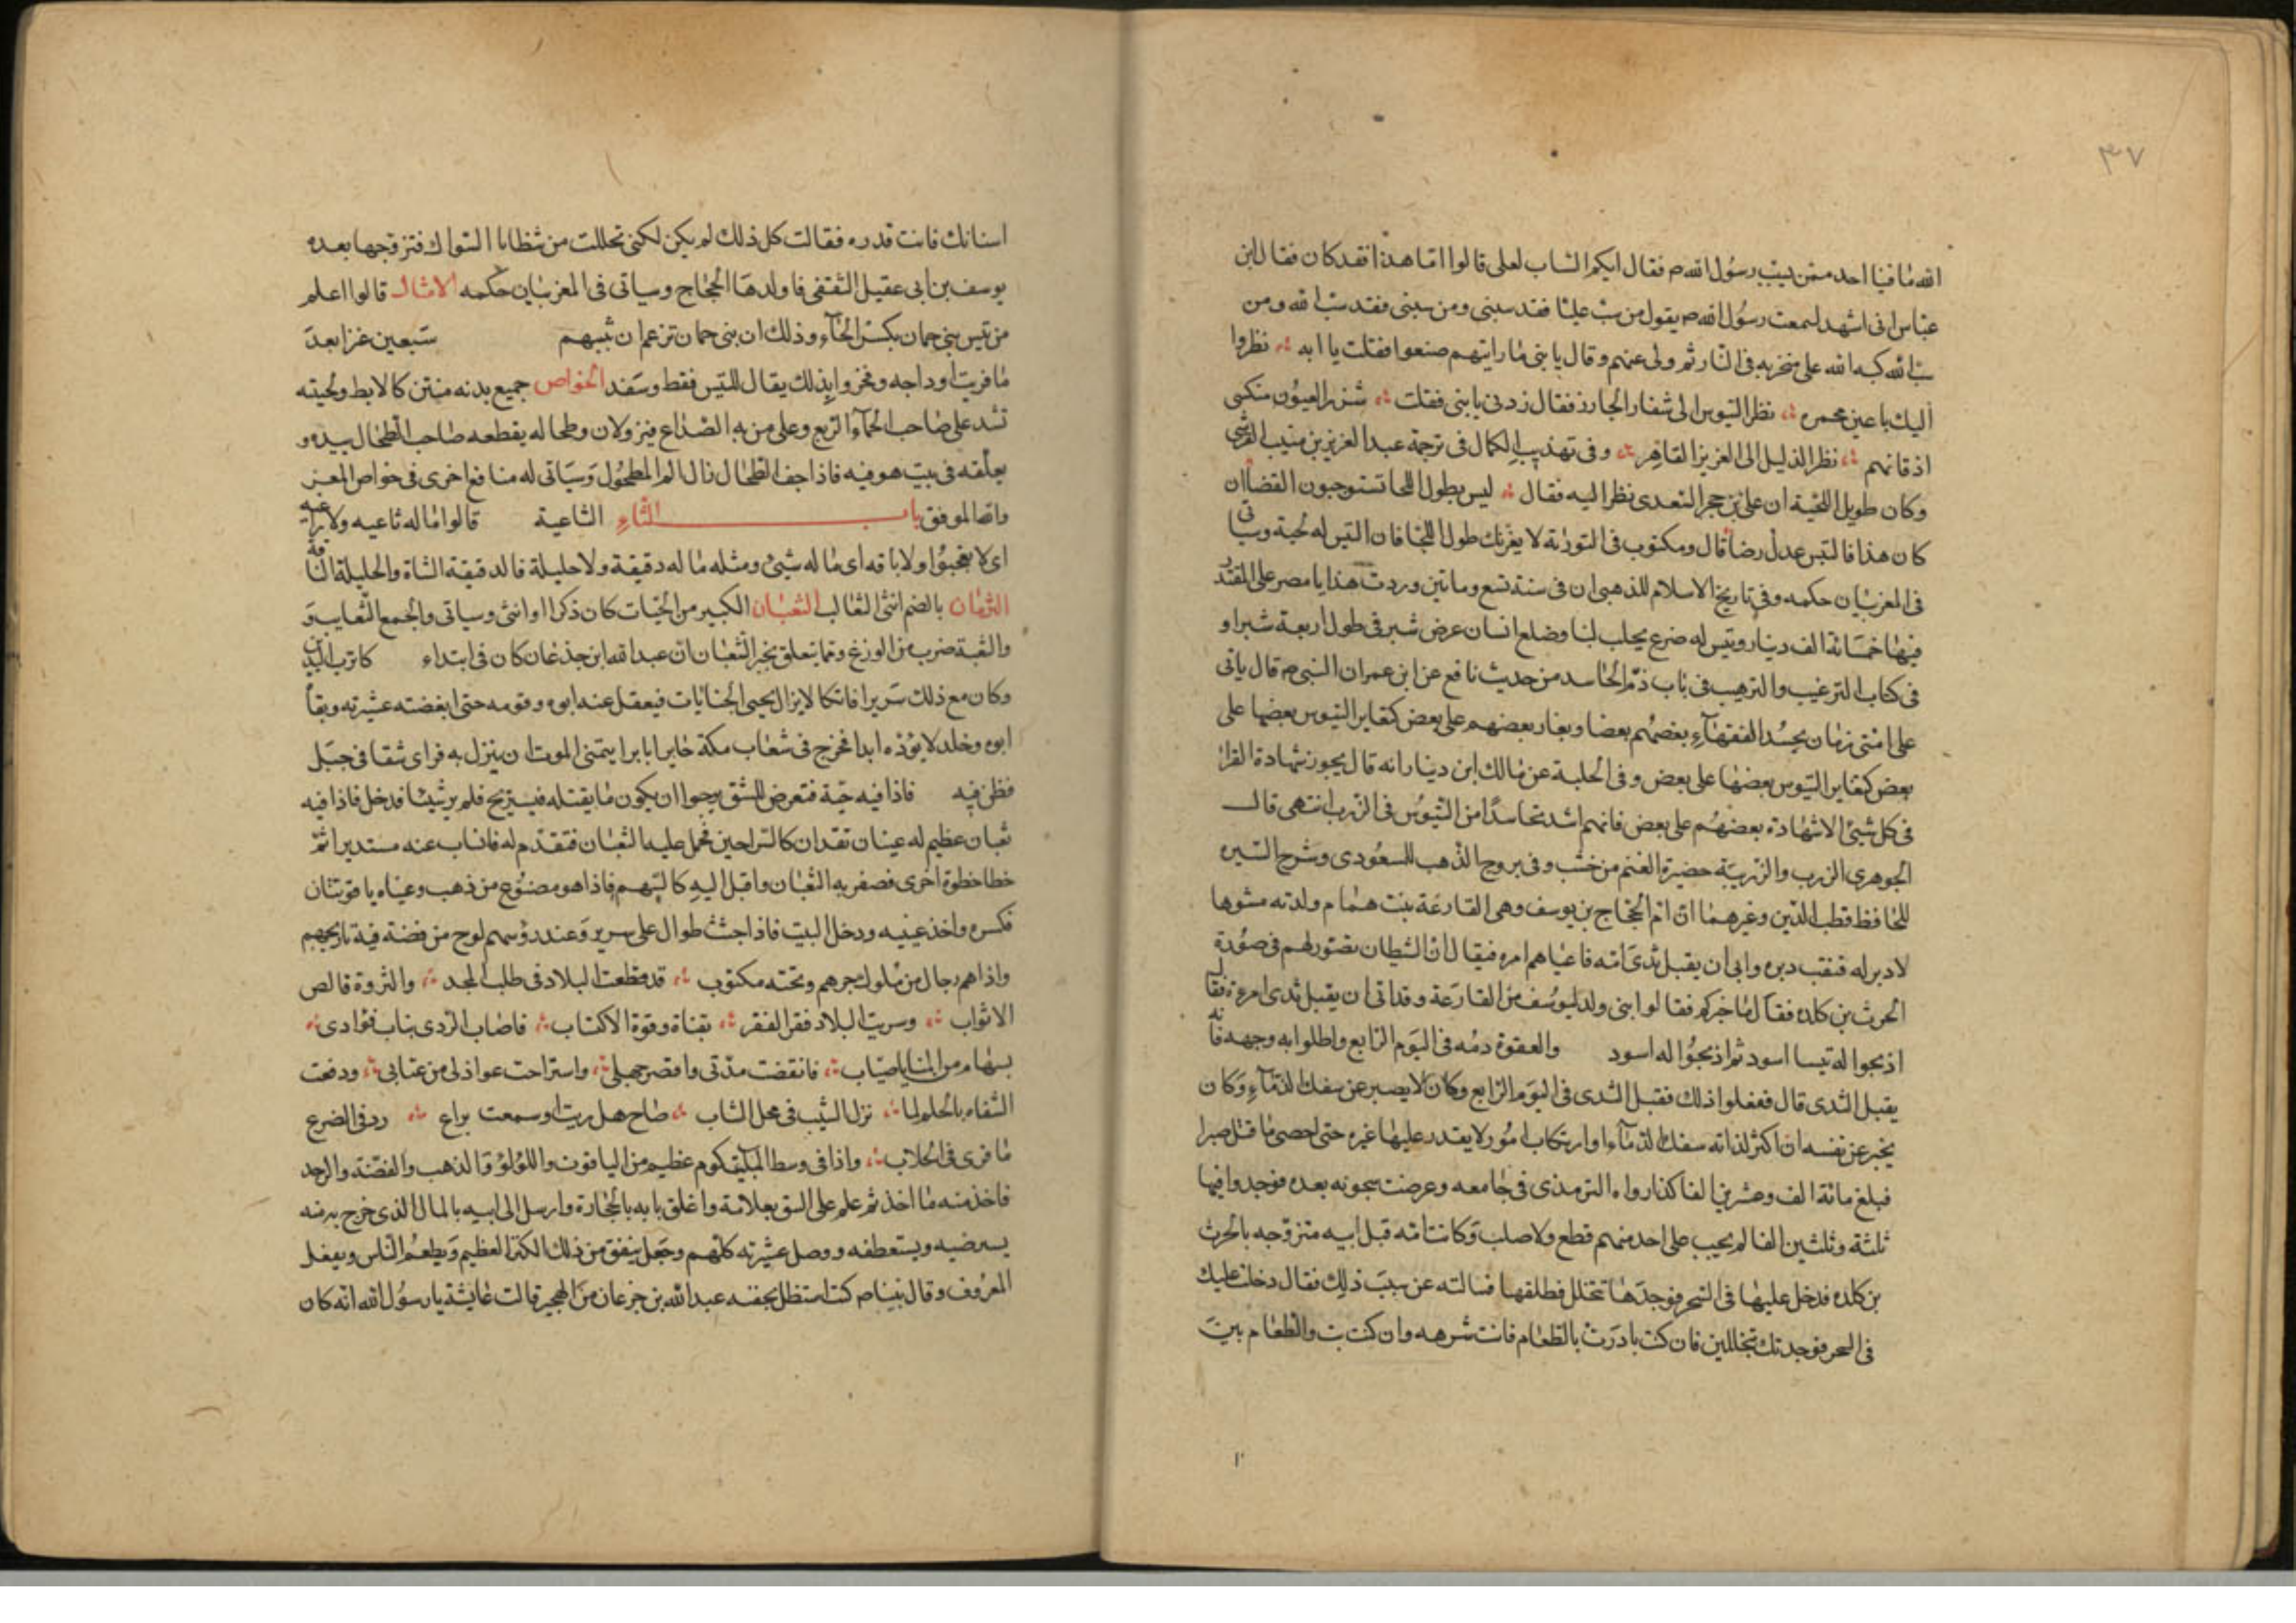 ٣٧
الله ما فينا احد ممن يسب رسول الله م فقال ايكم الساب لعلى قالوا اما هذا فقد كان فقال ابن
عباس انى اشهد لسمعت رسول الله م يقول من سب عليا فقد سبنى ومن سبنى فقد سب الله ومن
سب الله كبه الله على منخريه فى النار ثم ولى عنهم وقال يا بنى ما رايتهم صنعوا فقلت يا ابه نظروا
اليك باعين محمره نظر التيوس الى شفار الجازر فقال زدنى يا بنى فقلت شزر العيون منكسى
اذقانهم نظر الذليل الى العزيز القاهر وفى تهذيب الكمال فى ترجمة عبد العزيز بن منيب القرشى
وكان طويل اللحية ان على بن حجر السعدى نظر اليه فقال ليس بطول اللحا تستوجبون القضا ان
كان هذا فالتيس عدل رضا قال ومكتوب فى التورية لا يغرنك طول اللحا فان التيس له لحية وسياتى
فى المعز بيان حكمه وفى تاريخ الاسلام للذهبى ان فى سنة تسع وماتين وردت هدايا مصر على المقتدر
فيها خمسائة الف دينار وتيس له ضرع يحلب لبنا وضلع انسان عرض شبر فى طول اربعة شبرا و
فى كتاب الترغيب والترهيب فى باب ذم الحاسد من حديث نافع عن ابن عمر ان النبى م قال ياتى
على امتى زمان يحسد الفقهاء بعضهم بعضا ويغار بعضهم على بعض كتغاير التيوس بعضها على
بعض كتغاير التيوس بعضها على بعض وفى الحلية عن مالك ابن دينار انه قال يجوز شهادة القرا
فى كل شيئ الا شهادة بعضهم على بعض فانهم اشد تحاسدا من التيوس فى الزرب انتهى قال
الجوهرى الزرب والزريبة حضيرة الغنم من خشب وفى مروج الذهب للمسعودى وشرح السيره
للحافظ قطب الدين وغيرهما ان ام الحجاج بن يوسف وهى القارعة بنت همام ولدته مشوها
لا دبر له فنقب دبره وابى ان يقبل ثدى امه فاعياهم امره فيقال ان الشيطان تصور لهم فى صورة
الحرث بن كلده فقال ما خبركم فقالوا ابنى ولد ليوسف من القارعة وقد اتى ان يقبل ثدى امه فقال
اذبحوا له تيسا اسود ثم اذبحوا له اسود والعقوة دمه فى اليوم الرابع واطلوا به وجهه فانه
يقبل الثدى قال ففعلوا ذلك فقبل الثدى فى اليوم الرابع وكان لا يصبر عن سفك الدماء وكان
يخبر عن نفسه ان اكثر لذاته سفك الدماء وارتكاب امور لا يقدر عليها غيره حتى احصى ما قتل صبرا
فبلغ مائة الف وعشرين الفا كذا رواه الترمذى فى جامعه وعرضت سجونه بعده فوجدوا فيها
ثلثة وثلثين الفا لم يجب على احد منهم قطع ولا صلب وكانت امه قبل ابيه متزوجه بالحرث
بن كلده فدخل عليها فى السحر فوجدها تتخلل فطلقها فسالته عن سبب ذلك فقال دخلت عليك
فى السحر فوجدتك تتخللين فان كنت بادرت بالطعام فانت شرهه وان كنت بت والطعام بين
اسنانك فانت قدره فقالت كل ذلك لم يكن لكنى تحللت من شظايا السواك فتزوجها بعده
يوسف بن ابى عقيل الثقفى فاولدها الحجاج وسياتى فى المعز بيان حكمه الامثال قالوا اعلم
من تيس بنى حمان بكسر الحاء وذلك ان بنى حمان تزعم ان تيسهم سبعين عنزا بعد
ما فريت اوداجه وفخروا بذلك يقال للتيس فقط وسفد الخواص جميع بدنه منتن كالابط ولحيته
تشد على صاحب الحماء الربع وعلى من به الصداع فيزولان وطحاله يقطعه صاحب الطحال بيده و
يعلقه فى بيت هو فيه فاذا جف الطحال زال الم المطحول وسياتى له منافع اخرى فى خواص المعز
والله الموفق باب الثاء الثاعية قالوا ماله ثاعيه ولا راعيه
اى لا ولا ناقه اى ما له شيئ ومثله ما له دقيقة ولا جليلة فالدقيقة الشاة والجليلة الناقة
الثرمان بالضم انثى الثعالب الثعبان الكبير من الحيات كان ذكرا او انثى وسياتى والجمع الثعابين و
والثبة ضرب من الوزغ ومما يتعلق بخبر الثعبان ان عبد الله ابن جذعان كان فى ابتداء كاترب اليدين
وكان مع ذلك شريرا فاتكا لا يزال يجبى الجنايات فيعقل عنه ابوه وقومه حتى ابغضته عشيرته ويقا
ابوه وخلد لا يؤذه ابدا فخرج فى شعاب مكة حايرا بايرا يتمنى الموت ان ينزل به فراى شقا فى جبل
فظن فيه فاذا فيه حية فتعرض للشق يرجوا ان يكون ما يقتله فيستريح فلم ير شيئا فدخل فاذا فيه
ثعبان عظيم له عينان تقدان كالسراجين فحمل عليه الثعبان فتقدم له فانساب عنه مستديرا ثم
خطا خطوة اخرى فصفر به الثعبان واقبل اليه كالسهم فاذا هو مصنوع من ذهب وعيناه ياقوتتان
فكسره واخذ عينيه ودخل البيت فاذا جثث طوال على سرير وعند رؤسهم لوح من فضة فيه تاريخهم
واذا هم رجال من ملوك جرهم وتحته مكتوب قد قطعت البلاد فى طلب المجد والثروة قالص
الاثواب وسريت البلاد فقر الفقر بقناة وقوة الاكتساب فاصاب الردى بناب فؤادى
بسهام من المنايا صياب فانقضت مدتى واقصر جهلى واستراحت عواذلى من عتابى ودفعت
الشفاه بالحلم لما نزل الشيب فى محل الشاب صاح هل ريت او سمعت براع رد فى الضرع
ما قرى فى الحلاب واذا فى وسط البيت كوم عظيم من الياقوت واللؤلؤ والذهب والفضة والزبرجد
فاخذ منه ما اخذ ثم علم على الشق بعلامة واغلق بابه بالحجارة وارسل الى ابيه بالمال الذى خرج به منه
يسترضيه ويستعطفه ووصل عشيرته كلهم وجعل ينفق من ذلك الكنز العظيم ويطعم الناس ويفعل
المعروف وقال نبينا م كنت استظل بجفنه عبد الله بن جزعان من الهجير قالت عايشة يا رسول الله انه كان